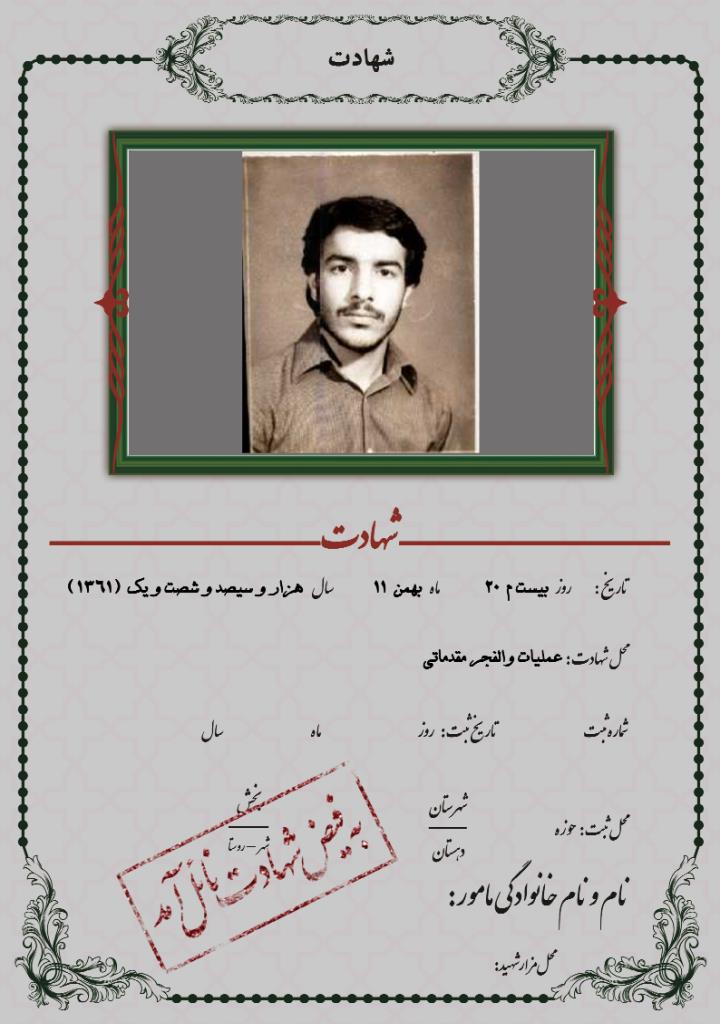 شهادت
شهادت
تاریخ: روز بیستم ۲۰ ماه بهمن ۱۱ سال هزار و سیصد و شصت و یک (۱۳۶۱)
محل شهادت: عملیات والفجر مقدماتی
شماره ثبت تاریخ ثبت: روز ماه سال
محل ثبت: حوزه شهرستان بخش
دهستان شهر-روستا
به فیض شهادت نائل آمد
نام و نام خانوادگی مامور:
محل مزار شهید: